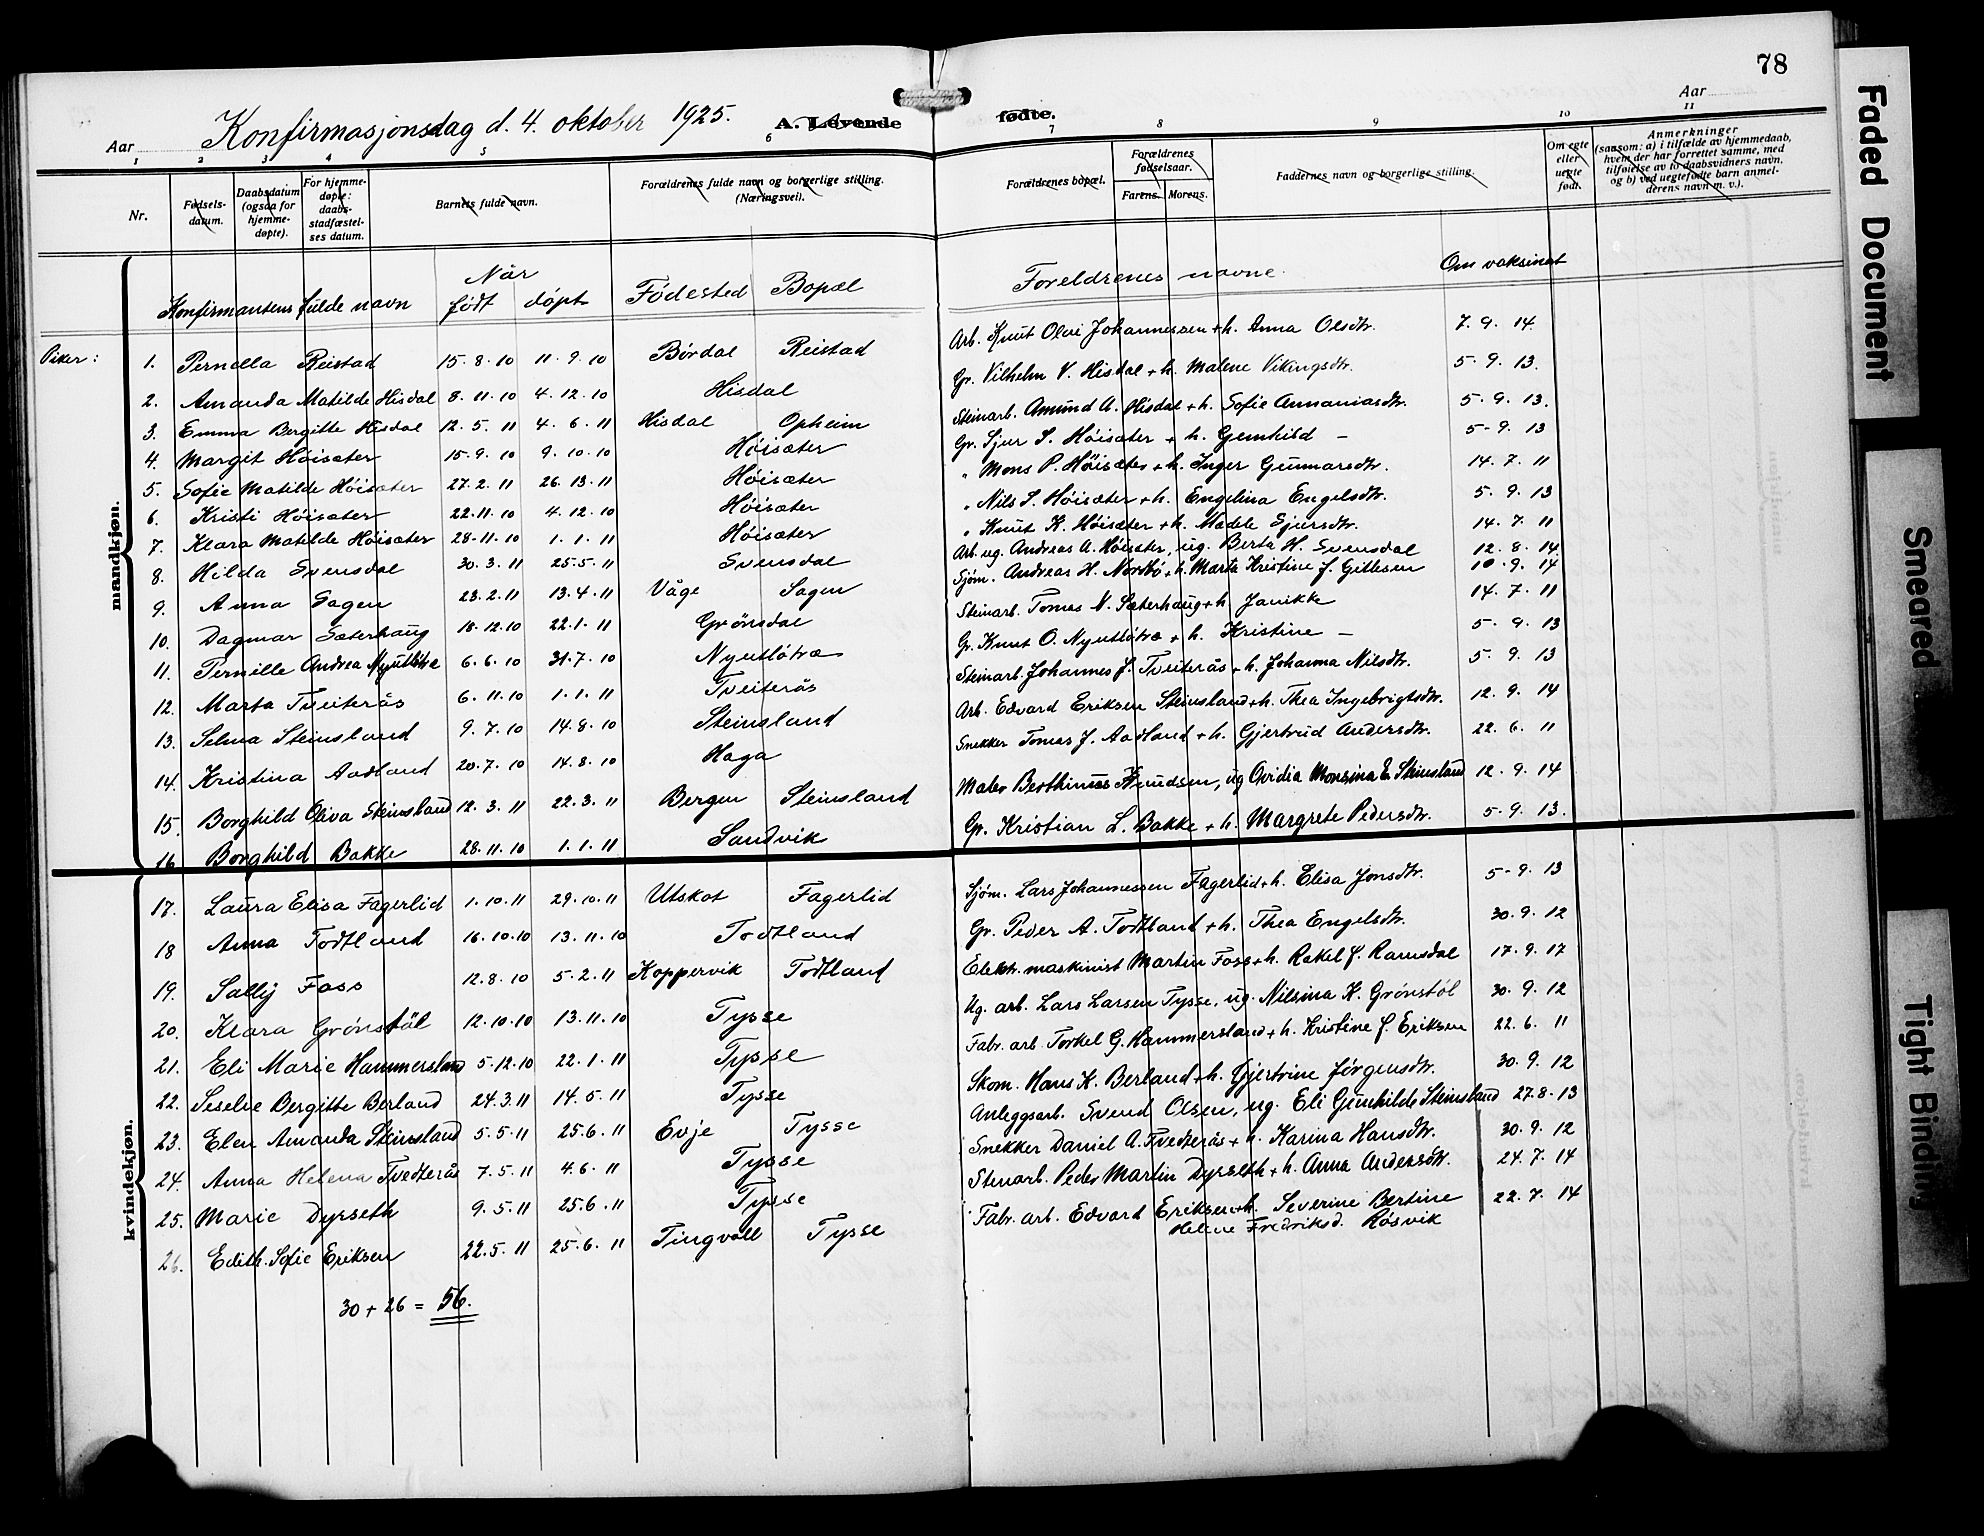 78
Konfirmasjonsdag d. 4. oktober 1925.
A. Levende fødte.
Aar
Aar
1 2 3 4 5 6 7 8 9 10 11
Nr.
Fødsels-datum.
Daabsdatum (ogsaa for hjemme-døpte).
For hjemme-døpte: daabs-stadfæstel-ses datum.
Barnets fulde navn.
Forældrenes fulde navn og borgerlige stilling. (Næringsvei).
Forældrenes bopæl.
Forældrenes fødselsaar.
Farens. Morens.
Faddernes navn og borgerlige stilling.
Om egte eller uegte født.
Anmerkninger
(saasom: a) i tilfælde av hjemmedaab, hvem der har forrettet samme, med tilføielse av to daabsvidners navn, og b) ved uegtefødte barn anmel-derens navn m. v.).
mandkjøn.
kvindekjøn.
Konfirmantens fulde navn Når født døpt Fødested Bopæl Foreldrenes navne. Om vaksinert
Piker:
1. Pernella Reistad 15.8.10 11.9.10 Børdal Reistad Arb. Knut Olai Johannessen + h. Anna Olsdtr. 7.9.14.
2. Amanda Matilde Hisdal 8.11.10 4.12.10 Hisdal Gr. Vilhelm V. Hisdal + h. Malene Vikingsdtr. 5.9.13.
3. Emma Bergitte Hisdal 12.5.11 4.6.11 Hisdal Opheim Steinarb. Amund A. Hisdal + h. Sofie Annaniasdtr. 5.9.13.
4. Margit Høisæter 15.9.10 9.10.10 Høisæter Gr. Sjur S. Høisæter + h. Gunhild – 5.9.13
5. Sofie Matilde Høisæter 27.2.11 26.13.11 Høisæter " Mons P. Høisæter + h. Inger Gunnarsdtr. 14.7.11
6. Kristi Høisæter 22.11.10 4.12.10 Høisæter " Nils S. Høisæter + h. Engelina Engelsdtr. 5.9.13
7. Klara Matilde Høisæter 28.11.10 1.1.11 Høisæter " Knut K. Høisæter + h. Madele Sjursdtr. 14.7.11
8. Hilda Svensdal 30.3.11 25.5.11 Svensdal Arb. ug. Andreas A. Høisæter, ug. Berta H. Svensdal 12.8.14
9. Anna Sagen 23.2.11 13.4.11 Våge Sagen Sjøm. Andreas H. Nordbø + h. Marta Kristine J. Gillesen 10.9.14
10. Dagmar Sæterhaug 18.12.10 22.1.11 Grønsdal Steinarb. Tomas N. Sæterhaug + h Janikke 14.7.11
11. Pernille Andrea Nyutløtræ 6.6.10 31.7.10 Nyutløtræ Gr. Knut O. Nyutløtræ + h. Kristine – 5.9.13
12. Marta Tveiterås 6.11.10 1.1.11 Tveiterås Steinarb. Johannes J. Tveiterås + h. Johanna Nilsdtr. 5.9.13
13. Selma Steinsland 9.7.10 14.8.10 Steinsland Arb. Edvard Eriksen Steinsland + h. Thea Ingebrigtsdtr. 12.9.14
14. Kristina Aadland 20.7.10 14.8.10 Haga Snekker Tomas J. Aadland + h. Gjertrud Andersdtr. 22.6.11
15. Borghild Oliva Steinsland 12.3.11 22.3.11 Bergen Steinsland Maler Berthinius Knudsen, ug Ovidia Monsina E. Steinsland 12.9.14
16 Borghild Bakke 28.11.10 1.1.11 Sandvik Gr. Kristian L. Bakke + h. Margrete Pedersdtr. 5.9.13.
17. Laura Elisa Fagerlid 1.10.11 29.10.11 Utskot Fagerlid Sjøm. Lars Johannessen Fagerlid + h. Elisa Jonsdtr. 5.9.13
18 Anna Todtland 16.10.10 13.11.10 Todtland Gr. Peder A. Todtland + h. Thea Engelsdtr. 30.9.12
19. Sally Foss 12.8.10 5.2.11 Koppervik Todtland Elektr. maskinist Martin Foss + h. Rakel J. Ramsdal 17.9.17
20. Klara Grønstøl 12.10.10 13.11.10 Tysse Ug. arb. Lars Larsen Tysse, ug. Nilsina K. Grønstøl 30.9.12
21. Eli Marie Hammersland 5.12.10 22.1.11 Tysse Fabr. arb. Torkel G. Hammersland + h. Kristine J. Eriksen 22.6.11
22. Seselie Bergitte Berland 24.3.11 14.5.11 Tysse Skom. Hans K. Berland + h. Gjertrine Jørgensdtr. 30.9.12
23. Elen Amanda Steinsland 5.5.11 25.6.11 Evje Tysse Anleggsarb. Svend Olsen, ug. Eli Gunhilde Steinsland 27.8.13
24. Anna Helena Tvedterås 7.5.11 4.6.11 Tysse Snekker Daniel A. Tvedterås + h. Karina Hansdtr. 30.9.12
25. Marie Dyrseth 9.5.11 25.6.11 Tysse Stenarb. Peder Martin Dyrseth + h. Anna Andersdtr. 24.7.14
26. Edith Sofie Eriksen 22.5.11 25.6.11 Tingvoll Tysse Fabr. arb. Edvard Eriksen + h. Severine Bertine 22.7.14
Helene Fredriksd. Røsvik
30 + 26 = 56.
Faded Document
Smeared
Tight Binding